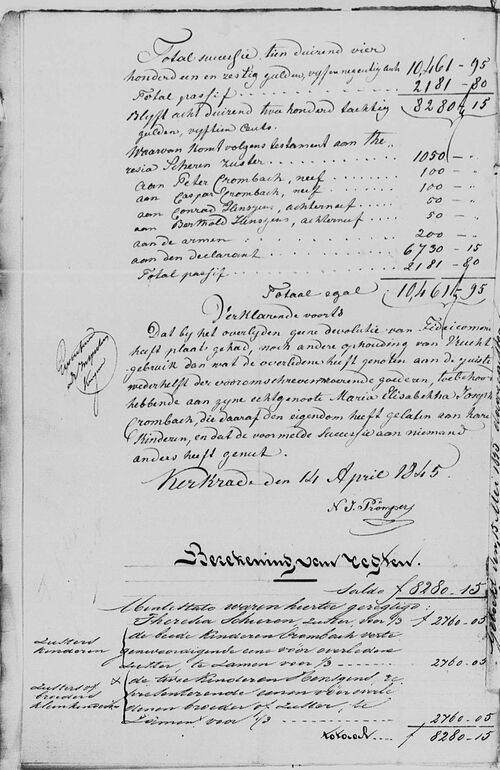 Total successie tien duizend vier
honderd een en zestig gulden, vyf en negentig cents 10,461 - 95
Total passif 2181 - 80
Blyft acht duizend twe honderd tachtig 8280 - 15
gulden, vyftien Cents.
Waarvan komt volgens testament aan The
resia Scheren zuster 1050 - "
aan Peter Crombach, neef 100 - "
aan Caspar Crombach, neef 100 - "
aan Conrad Henszens, achterneef 50 - "
aan Berthold Henszens, achterneef 50 - "
aan de armen 200 - "
aan den declarant 6730 - 15
Total passif 2181 - 80
Totaal egal 10,461 - 95
Verklarende voorts
Dat by het overlyden geene devolutie van Fideicommis
heeft plaats gehad, noch andere ophouding van Vrucht
gebruik dan wat de overledene heeft genoten aan de juiste
wederhelft der vooromschreven roerende goederen, toebehoord
hebbende aan zyne echtgenoote Maria Elisabetha Joseph
Crombach, die daaraf den eigendom heeft gelaten aan hare
Kinderen, en dat de voormelde successie aan niemand
anders heeft geniet.
Kerkrade den 14 April 1845.
N. J. Prömpers
Berekening van regten.
Saldo f 8280 - 15
Ab intestato waren hiertoe geregtigd:
Theresia Scheren, zuster, voor 1/3 f 2760 - 05
Zusters
kinderen
de beide kinderen Crombach verte
genwoordigende eene voor overledene
zuster, te zamen voor 1/3 2760 - 05
Zusters of
broeders
kleinkinderen
& de twee kinderen Henszens, re
presenterende eenen voor overle
denen broeder of zuster, te
zamen voor 1/3 2760 - 05
totaal f 8280 - 15